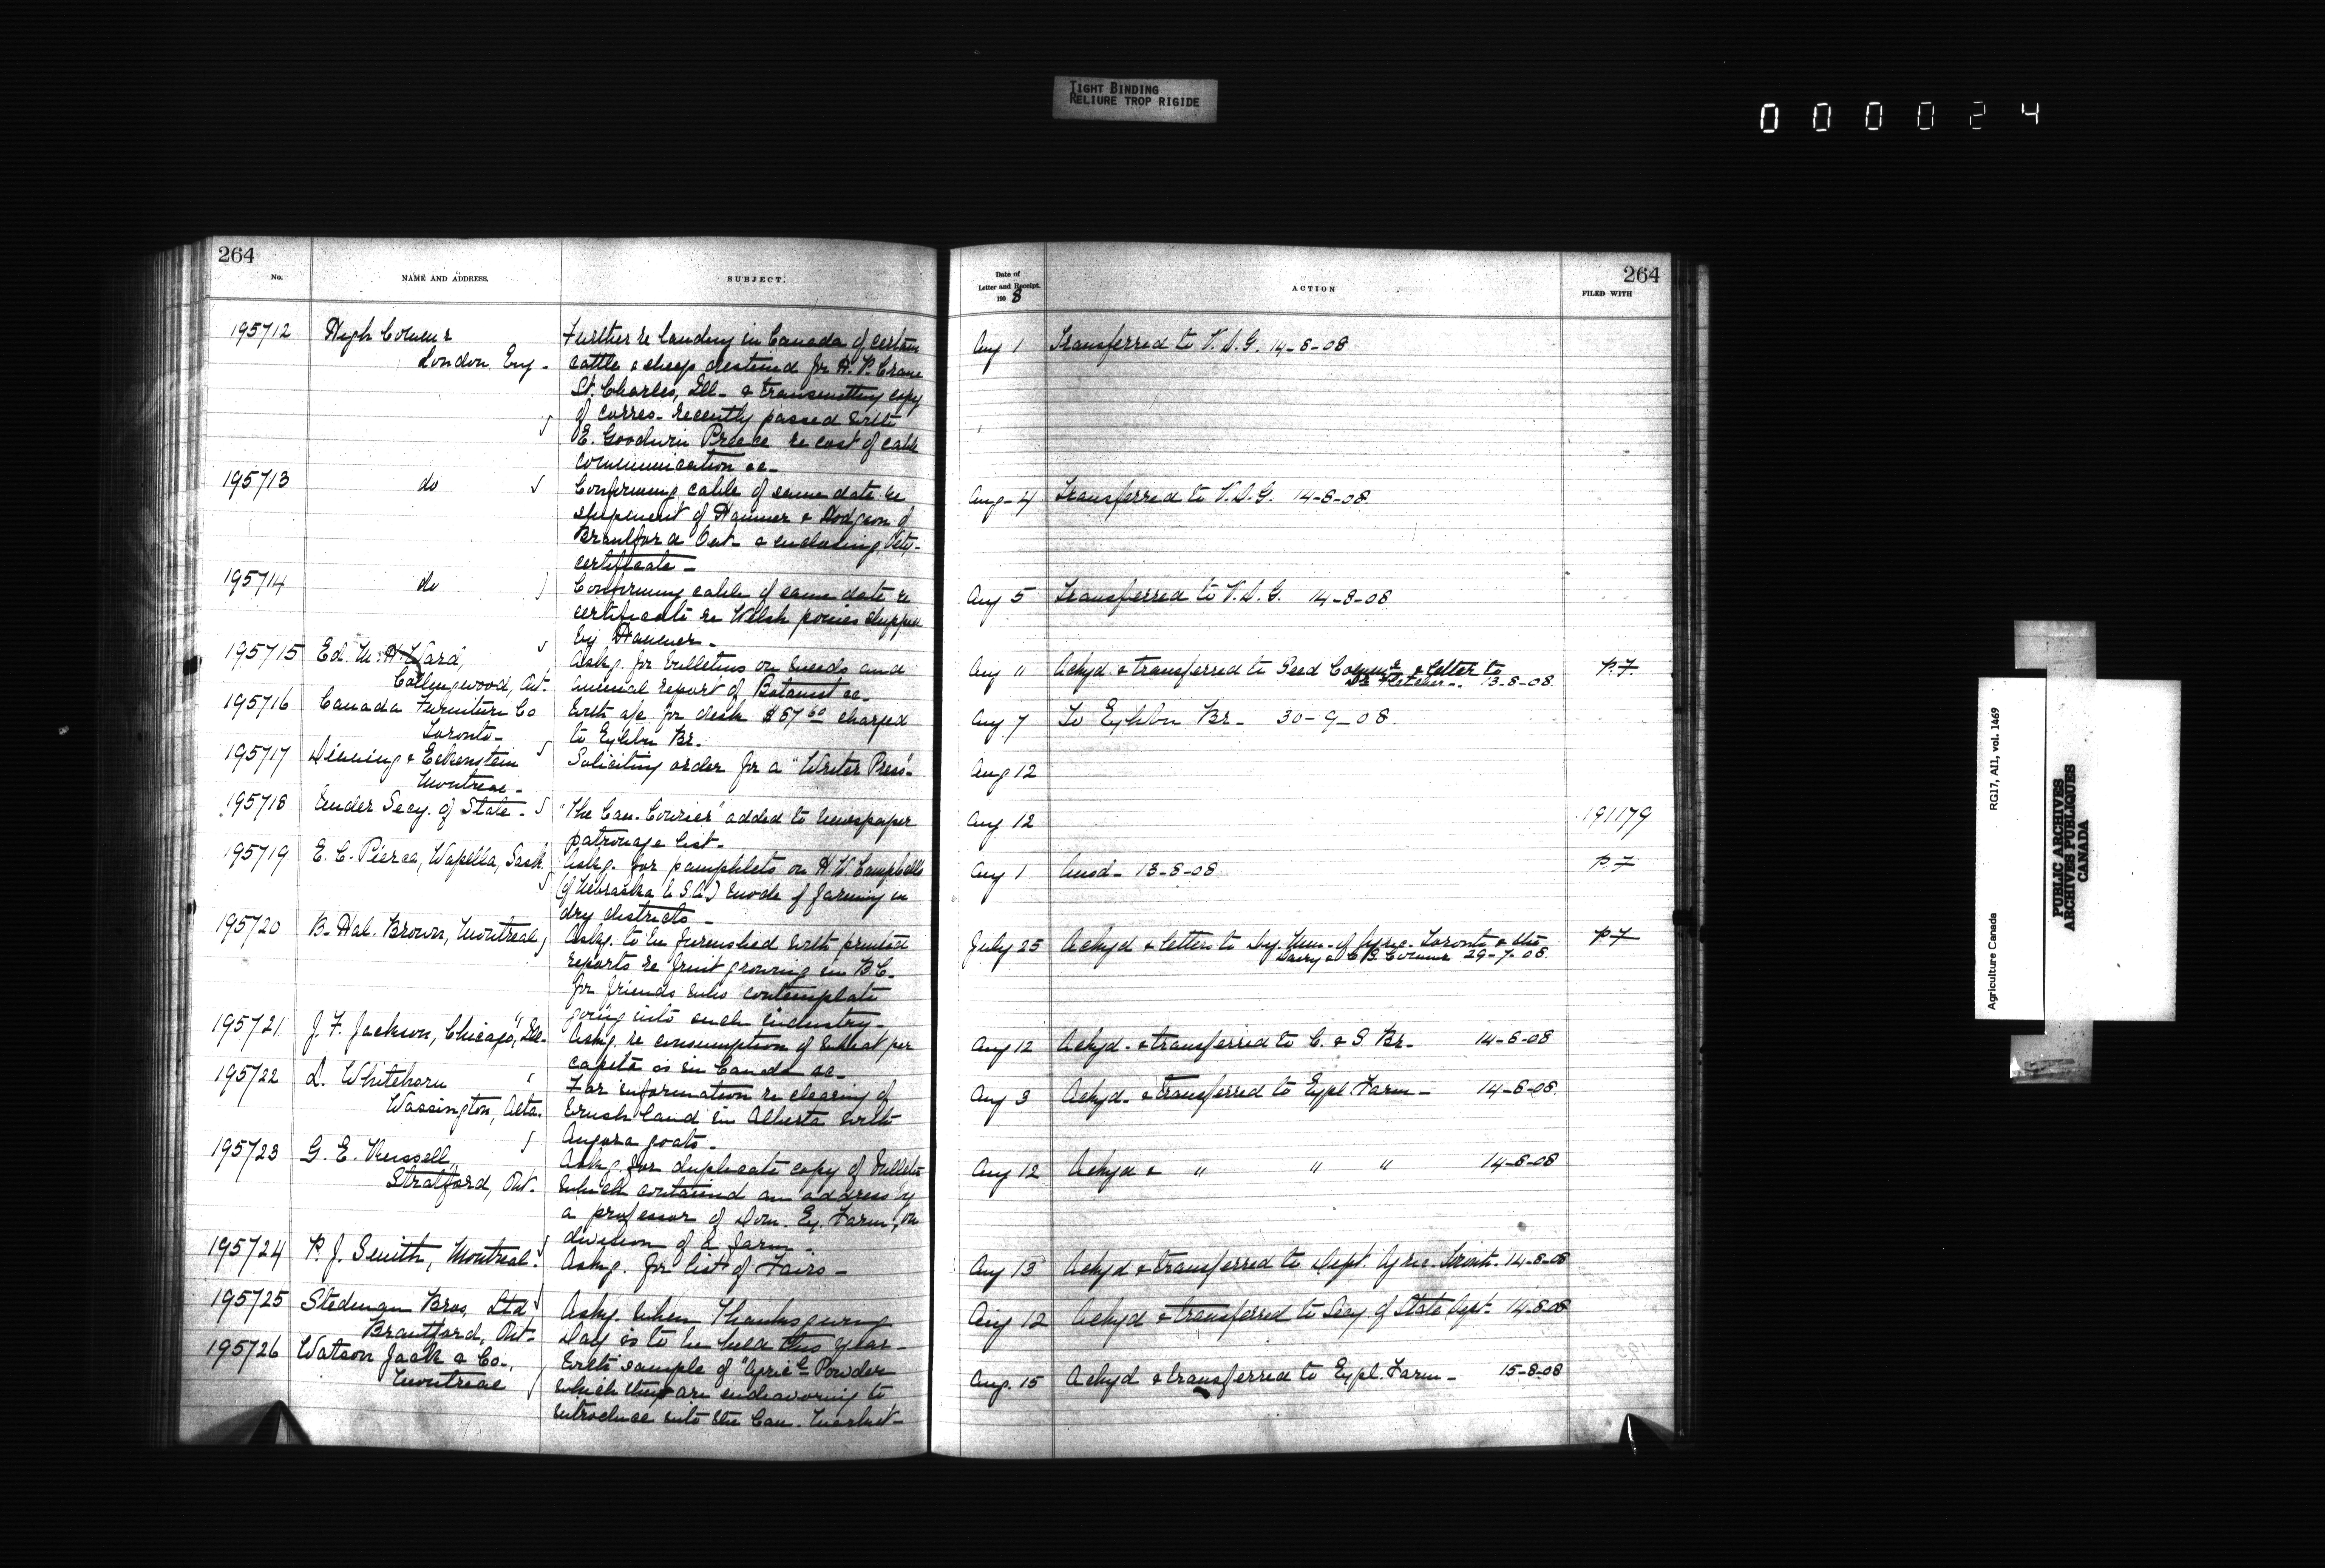 TIGHT BINDING
RELIURE TROP RIGIDE
000024
264
No.
NAME AND ADDRESS.
SUBJECT.
Date of
Letter and Receipt.
1908
ACTION
264
FILED WITH
195712 High Commr Further re landing in Canada of certain Aug 1 Transferred to V.D.G. 14-8-08
London Eng - cattle & sheep destined for H. P. Crane
St. Charles, Ill. & transmitting copy
of corres. recently passed with
E. Goodwin Preece re cost of cable
communication &c-
195713 do Confirming cable of same date re Aug-4 Transferred to V.D.G. 14-8-08
shipment of Hanmer & Hodgson of
Brantford Ont- & enclosing Vety-
certificate-
195714 do Confirming cable of same date re Aug 5 Transferred to V.D.G. 14-8-08
certificate re Welsh ponies shipped
by Hanmer-
195715 Ed. Ward, Askg. for bulletins on weeds and Aug " Ackgd & transferred to Seed Commr & letter to P.7.
Collingwood, Ont. annual report of Botanist &c- Dr Fletcher- 13-8-08
195716 Canada Furniture Co With a/c for desk $57.60 charged Aug 7 To Exhbn Br- 30-9-08.
Toronto- to Exhbn Br.
195717 & Eckenstein Soliciting order for a "Writer Press- Aug 12
Montreal-
195718 Under Secy. of State- "The Can. Courier" added to newspaper Aug 12 191179
patronage list-
195719 E. C. Pierce, Wapella, Sask Askg. for pamphlets on H. W. Campbells Aug 1 Ansd- 13-8-08 P 7
(of Nebraska U.S.A.) mode of farming in
dry districts-
195720 B. Hal. Brown, Montreal, Askg. to be furnished with printed July 25 Ackgd & letters to Dy. Min. of Agric. Toronto & the P7
reports re fruit growing in B.C. Dairy & C.S. Commr 29-7-08.
for friends who contemplate
going into such industry-
195721 J. F. Jackson, Chicago, Ill- Askg. re consumption of wheat per Aug 12 Ackgd- & transferred to C. & S Br- 14-8-08
capita as in Canada &c-
195722 D. Whitehorn For information re clearing of Aug 3 Ackgd- & transferred to Expl. Farm- 14-8-08.
Wassington, Alta. brush land in Alberta with
Angora goats-
195723 G. E. Russell, Askg. for duplicate copy of bulletin Aug 12 Ackgd & " " " 14-8-08
Stratford, Ont. which contained an address by
a professor of Dom. Ex. Farm, on
division of a farm-
195724 P. J. Smith, Montreal. Askg. for list of Fairs- Aug 13 Ackgd & transferred to Dept. Agric. Toronto- 14-8-08
195725 Stedman Bros, Ltd Askg. when Thanksgiving Aug 12 Ackgd & transferred to Secy. of State Dept- 14-8-08
Brantford, Ont- Day is to be held this year-
195726 Watson Jack & Co-, With sample of "Agricl- Powder Aug. 15 Ackgd & transferred to Expl. Farm- 15-8-08
Montreal which they are endeavoring to
introduce into the Can. Market-
Agriculture Canada
RG17, AI1, vol. 1469
PUBLIC ARCHIVES
ARCHIVES PUBLIQUES
CANADA